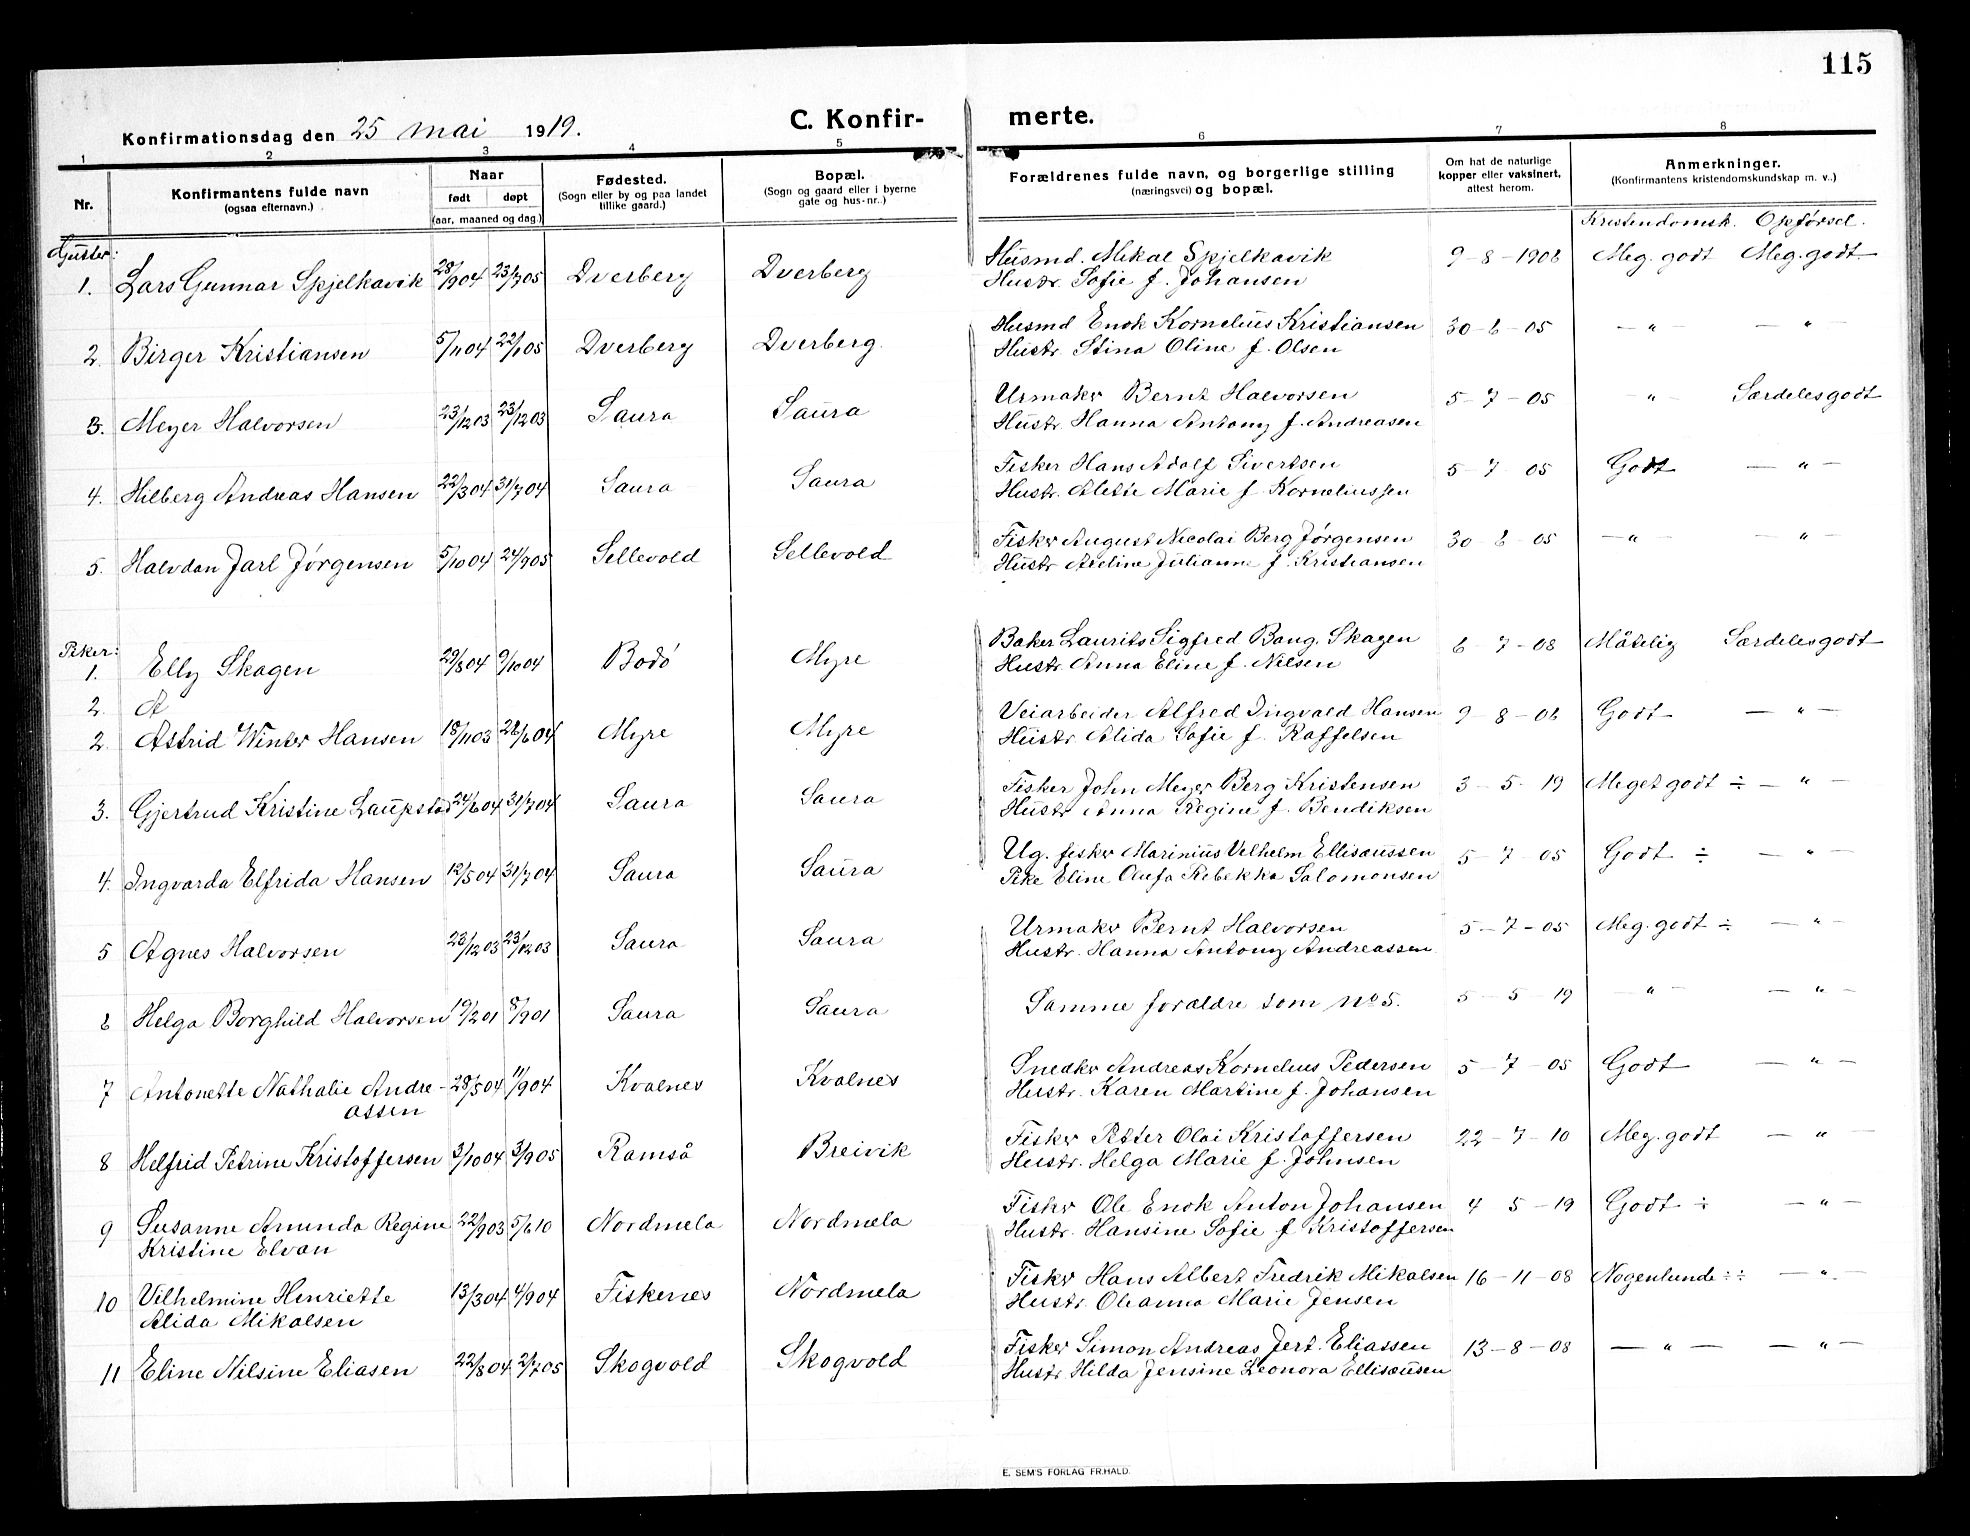 115
Konfirmationsdag den 25 mai 1919.
C. Konfir- merte.
1 2 3 4 5 6 7 8
Nr.
Konfirmantens fulde navn
(ogsaa efternavn.)
Naar
født døpt
(aar, maaned og dag.)
Fødested.
(Sogn eller by og paa landet
tillike gaard.)
Bopæl.
(Sogn og gaard eller i byerne
gate og hus-nr.)
Forældrenes fulde navn, og borgerlige stilling
(næringsvei) og bopæl.
Om hat de naturlige
kopper eller vaksinert,
attest herom.
Anmerkninger.
(Konfirmantens kristendomskundskap m. v.)
Kristendomsk. Opførsel.
Gutter:
1. Lars Gunnar Spjelkavik 28/9 04 23/7 05 Dverberg Dverberg Husmd. Mikal Spjelkavik 9-8-1906 Meg. godt Meg. godt
Hustr. Sofie f. Johansen
2. Birger Kristiansen 5/11 04 22/1 05 Dverberg Dverberg. Husmd Enok Kornelius Kristiansen 30-6-05 — " — — " —
Hustr. Stina Oline f. Olsen
3. Meyer Halvorsen 23/12 03 23/12 03 Saura Saura Urmaker Bernt Halvorsen 5-7-05 — " — Særdeles godt
Hustr. Hanna Antony f. Andreasen
4. Hilberg Andreas Hansen 22/3 04 31/7 04 Saura Saura Fisker Hans Adolf Sivertsen 5-7-05 Godt — " —
Hustr. Alette Marie f. Korneliussen
5. Halvdan Jarl Jørgensen 5/10 04 24/9 05 Sellevold Sellevold Fisker August Nicolai Berg Jørgensen 30-6-05 — " — — " —
Hustr Adeline Julianne f. Kristiansen
Piker:
1. Elly Skagen 29/8 04 9/10 04 Bodø Myre Baker Laurits Sigfred Bang. Skagen 6-7-08 Måtelig Særdeles godt
Hustr. Anna Eline f. Nilsen
2. A
2. Astrid Winter Hansen 18/11 03 26/6 04 Myre Myre Veiarbeider Alfred Ingvald Hansen 9-8-06 Godt — " —
Hustr Alida Sofie f. Raffelsen
3. Gjertrud Kristine Laupstad 24/6 04 31/7 04 Saura Saura Fisker John Meyer Berg Kristensen 3-5-19 Meget godt ÷ — " —
Hustr. Anna Regine f. Bendiksen
4. Ingvarda Elfrida Hansen 12/5 04 31/7 04 Saura Saura Ug. fisker Marinius Vilhelm Ellisæussen 5-7-05 Godt ÷ — " —
Pike Eline Olufa Rebekka Salomonsen
5 Agnes Halvorsen 23/12 03 23/12 03 Saura Saura Urmaker Bernt Halvorsen 5-7-05 Meg. godt ÷ — " —
Hustr. Hanna Antony Andreassen
6 Helga Borghild Halvorsen 19/2 01 8/9 01 Saura Saura Samme forældre som no 5. 5-5-19 — " — — " —
7 Antonette Nathalie Andre- 28/5 04 11/9 04 Kvalnes Kvalnes Snedker Andreas Kornelius Pedersen 5-7-05 Godt — " —
assen Hustr. Karen Martine f. Johansen
8 Helfrid Petrine Kristoffersen 3/10 04 3/9 05 Ramså Breivik Fisker Petter Olai Kristoffersen 22-7-10 Meg. godt — " —
Hustr. Helga Marie f. Johnsen
9 Susanne Amunda Regine 22/9 03 5/6 10 Nordmela Nordmela Fisker Ole Enok Anton Johansen 4-5-19 Godt ÷ — " —
Kristine Elvan Hustr. Hansine Sofie f Kristoffersen
10 Vilhelmine Henriette 13/3 04 4/9 04 Fiskenes Nordmela Fisker Hans Albert Fredrik Mikalsen 16-11-08 Nogenlunde ÷÷ — " —
Alida Mikalsen Hustr. Oleanna Marie Jensen
11 Eline Nilsine Eliasen 22/8 04 2/7 05 Skogvold Skogvold Fisker Simon Andreas Jert. Eliassen 13-8-08 — " — — " —
Hustr. Hilda Jensine Leonora Ellisæusen
E. SEM'S FORLAG FR.HALD.